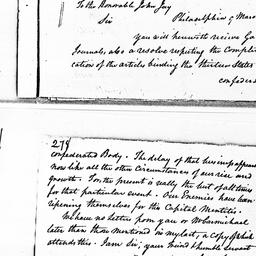 To the Honorable John Jay
Sir Philadelphia 9 Marc
you will herewith receive Ga
Journals, also a resolve respecting the Compli
cation of the articles binding the thirteen States
confedera
279
confederated Body. The delay of that
now like all the other circumstances of our rise and
growth. For the present is really the best of all times
for that particular event. Our Enemies have been
ripening themselves for this Capital
We have no letters from you or Mr Carmichael
later than those mentioned in my last, a copy of which
attends this. I am Sir, your friend & humble Servant